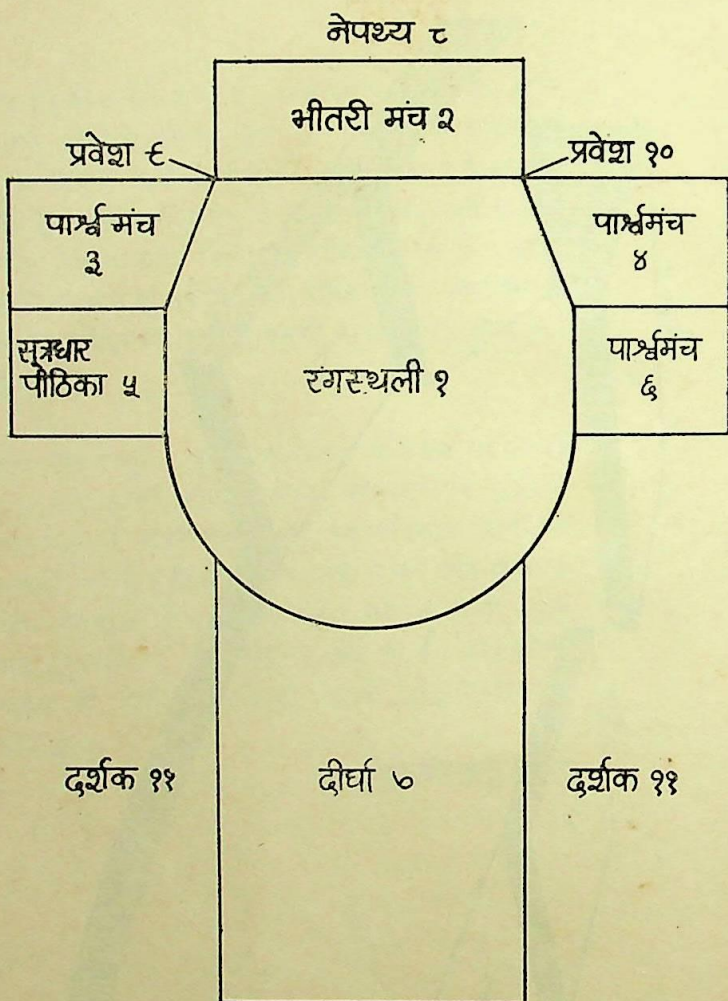 नेपथ्य ८
भीतरी मंच २
प्रवेश ९
प्रवेश १०
पार्श्व मंच
३
पार्श्वमंच
४
सूत्रधार
पीठिका ५
रंगस्थली १
पार्श्वमंच
६
दर्शक ११
दीर्घा ७
दर्शक ११